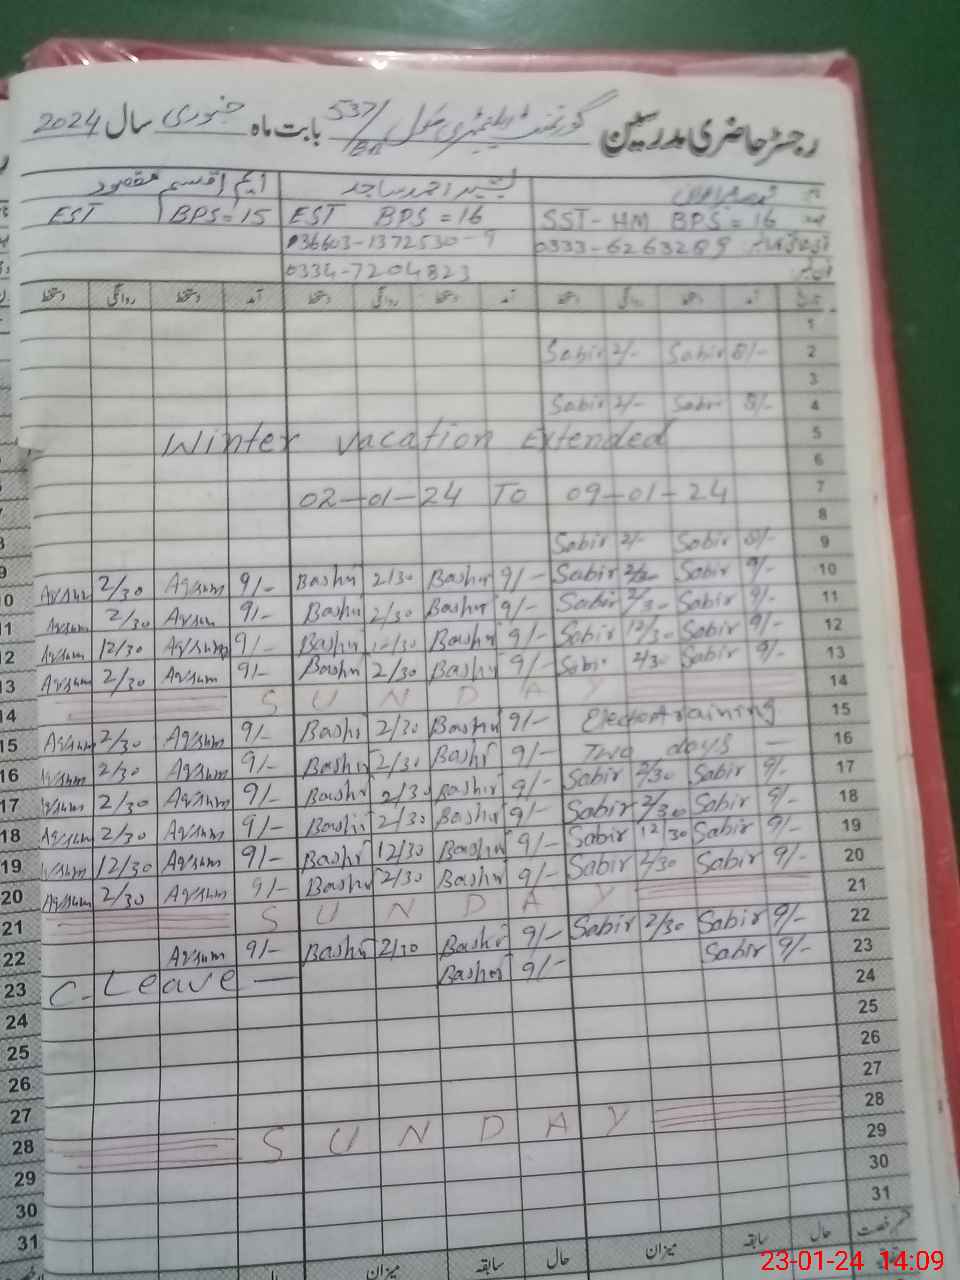 رجسٹر حاضری مدرسین گورنمنٹ ایلیمنٹری سکول 537/EB بابت ماہ جنوری سال 2024
بشیر احمد ساجد ایم اقسم مقصود
SST-HM BPS=16 EST BPS=16 EST BPS=15
0333-6263289 36603-1372530-9
0334-7204823
آمد دستخط روانگی دستخط آمد دستخط روانگی دستخط آمد دستخط روانگی دستخط
1
Sabir 2/- Sabir 8/- 2
3
Sabir 2/- Sabir 8/- 4
Winter vacation Extended 5
6
02-01-24 TO 09-01-24 7
8
Sabir 2/- Sabir 8/- 9
Aqsum 2/30 Aqsum 9/- Bashir 2/30 Bashir 9/- Sabir 2/30 Sabir 9/- 10
Aqsum 2/30 Aqsum 9/- Bashir 2/30 Bashir 9/- Sabir 2/30 Sabir 9/- 11
Aqsum 12/30 Aqsum 9/- Bashir 12/30 Bashir 9/- Sabir 12/30 Sabir 9/- 12
Aqsum 2/30 Aqsum 9/- Bashir 2/30 Bashir 9/- Sabir 2/30 Sabir 9/- 13
SUNDAY 14
Aqsum 2/30 Aqsum 9/- Bashir 2/30 Bashir 9/- Election training 15
Aqsum 2/30 Aqsum 9/- Bashir 2/30 Bashir 9/- Two days - 16
Aqsum 2/30 Aqsum 9/- Bashir 2/30 Bashir 9/- Sabir 2/30 Sabir 9/- 17
Aqsum 2/30 Aqsum 9/- Bashir 2/30 Bashir 9/- Sabir 2/30 Sabir 9/- 18
Aqsum 12/30 Aqsum 9/- Bashir 12/30 Bashir 9/- Sabir 12/30 Sabir 9/- 19
Aqsum 2/30 Aqsum 9/- Bashir 2/30 Bashir 9/- Sabir 2/30 Sabir 9/- 20
SUNDAY 21
Aqsum 9/- Bashir 2/30 Bashir 9/- Sabir 2/30 Sabir 9/- 22
C. Leave - Bashir 9/- Sabir 9/- 23
24
25
26
27
SUNDAY 28
29
30
31
حال سابقہ میزان حال سابقہ میزان
23-01-24 14:09